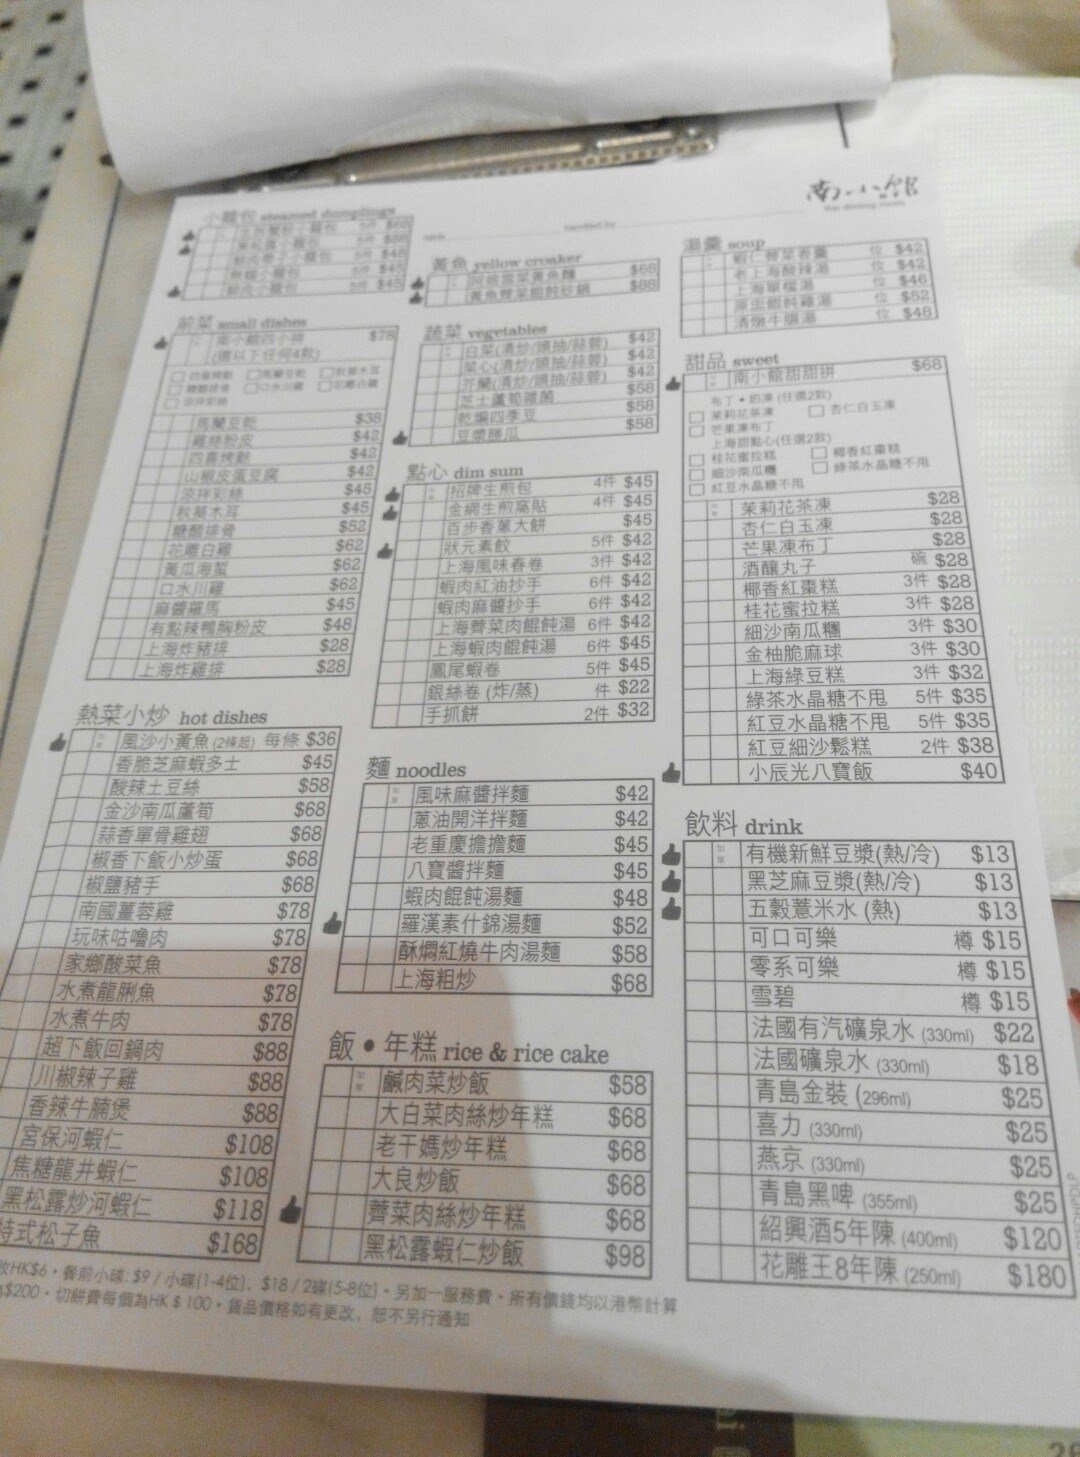 南小館
小籠包 steamed dumplings
鮮肉小籠包 5件 $45
前菜 small dishes
南小館四小拼 $78
(選以下任何4款)
四喜烤麩 馬蘭豆乾 秋葵木耳
糖醋排骨 口水川雞 花雕白雞
涼拌彩絲
馬蘭豆乾 $38
雞絲粉皮 $42
四喜烤麩 $42
山椒皮蛋豆腐 $42
涼拌彩絲 $45
秋葵木耳 $45
糖醋排骨 $52
花雕白雞 $62
黃瓜海蜇 $62
口水川雞 $62
麻醬羅馬 $45
有點辣鴨胸粉皮 $48
上海炸豬排 $28
上海炸雞排 $28
熱菜小炒 hot dishes
風沙小黃魚 (2條起) 每條 $36
香脆芝麻蝦多士 $45
酸辣土豆絲 $58
金沙南瓜蘆筍 $68
蒜香單骨雞翅 $68
椒香下飯小炒蛋 $68
椒鹽豬手 $68
南國薑蓉雞 $78
玩味咕嚕肉 $78
家鄉酸菜魚 $78
水煮龍脷魚 $78
水煮牛肉 $78
超下飯回鍋肉 $88
川椒辣子雞 $88
香辣牛腩煲 $88
宮保河蝦仁 $108
焦糖龍井蝦仁 $108
黑松露炒河蝦仁 $118
特式松子魚 $168
黃魚 yellow croaker
雪菜黃魚麵 $68
黃魚薺菜餛飩砂鍋 $88
蔬菜 vegetables
白菜(清炒/頭抽/蒜蓉) $42
菜心(清炒/頭抽/蒜蓉) $42
芥蘭(清炒/頭抽/蒜蓉) $42
芝士蘆筍雜菌 $58
乾煸四季豆 $58
豆漿勝瓜 $58
點心 dim sum
招牌生煎包 4件 $45
金網生煎窩貼 4件 $45
百步香蔥大餅 $45
狀元素餃 5件 $42
上海風味春卷 3件 $42
蝦肉紅油抄手 6件 $42
蝦肉麻醬抄手 6件 $42
上海薺菜肉餛飩湯 6件 $42
上海蝦肉餛飩湯 6件 $45
鳳尾蝦卷 5件 $45
銀絲卷 (炸/蒸) 件 $22
手抓餅 2件 $32
麵 noodles
加單 風味麻醬拌麵 $42
蔥油開洋拌麵 $42
老重慶擔擔麵 $45
八寶醬拌麵 $45
蝦肉餛飩湯麵 $48
羅漢素什錦湯麵 $52
酥燜紅燒牛肉湯麵 $58
上海粗炒 $68
飯•年糕 rice & rice cake
加單 鹹肉菜炒飯 $58
大白菜肉絲炒年糕 $68
老干媽炒年糕 $68
大良炒飯 $68
薺菜肉絲炒年糕 $68
黑松露蝦仁炒飯 $98
湯羹 soup
蝦仁薺菜香羹 位 $42
老上海酸辣湯 位 $42
上海單檔湯 位 $46
原盅餛飩雞湯 位 $52
清燉牛腩湯 位 $48
甜品 sweet
南小館甜甜拼 $68
布丁•奶凍 (任選2款)
茉莉花茶凍 杏仁白玉凍
芒果凍布丁
上海甜點心(任選2款)
桂花蜜拉糕 椰香紅棗糕
細沙南瓜糰 綠茶水晶糖不甩
紅豆水晶糖不甩
加單 茉莉花茶凍 $28
杏仁白玉凍 $28
芒果凍布丁 $28
酒釀丸子 碗 $28
椰香紅棗糕 3件 $28
桂花蜜拉糕 3件 $28
細沙南瓜糰 3件 $30
金柚脆麻球 3件 $30
上海綠豆糕 3件 $32
綠茶水晶糖不甩 5件 $35
紅豆水晶糖不甩 5件 $35
紅豆細沙鬆糕 2件 $38
小辰光八寶飯 $40
飲料 drink
加單 有機新鮮豆漿(熱/冷) $13
黑芝麻豆漿(熱/冷) $13
五穀薏米水 (熱) $13
可口可樂 樽 $15
零系可樂 樽 $15
雪碧 樽 $15
法國有汽礦泉水 (330ml) $22
法國礦泉水 (330ml) $18
青島金裝 (296ml) $25
喜力 (330ml) $25
燕京 (330ml) $25
青島黑啤 (355ml) $25
紹興酒5年陳 (400ml) $120
花雕王8年陳 (250ml) $180
收HK$6•餐前小碟: $9 / 小碟(1-4位), $18 / 2碟(5-8位)•另加一服務費•所有價錢均以港幣計算
$200•切餅費每個為HK $ 100•貨品價格如有更改，恕不另行通知